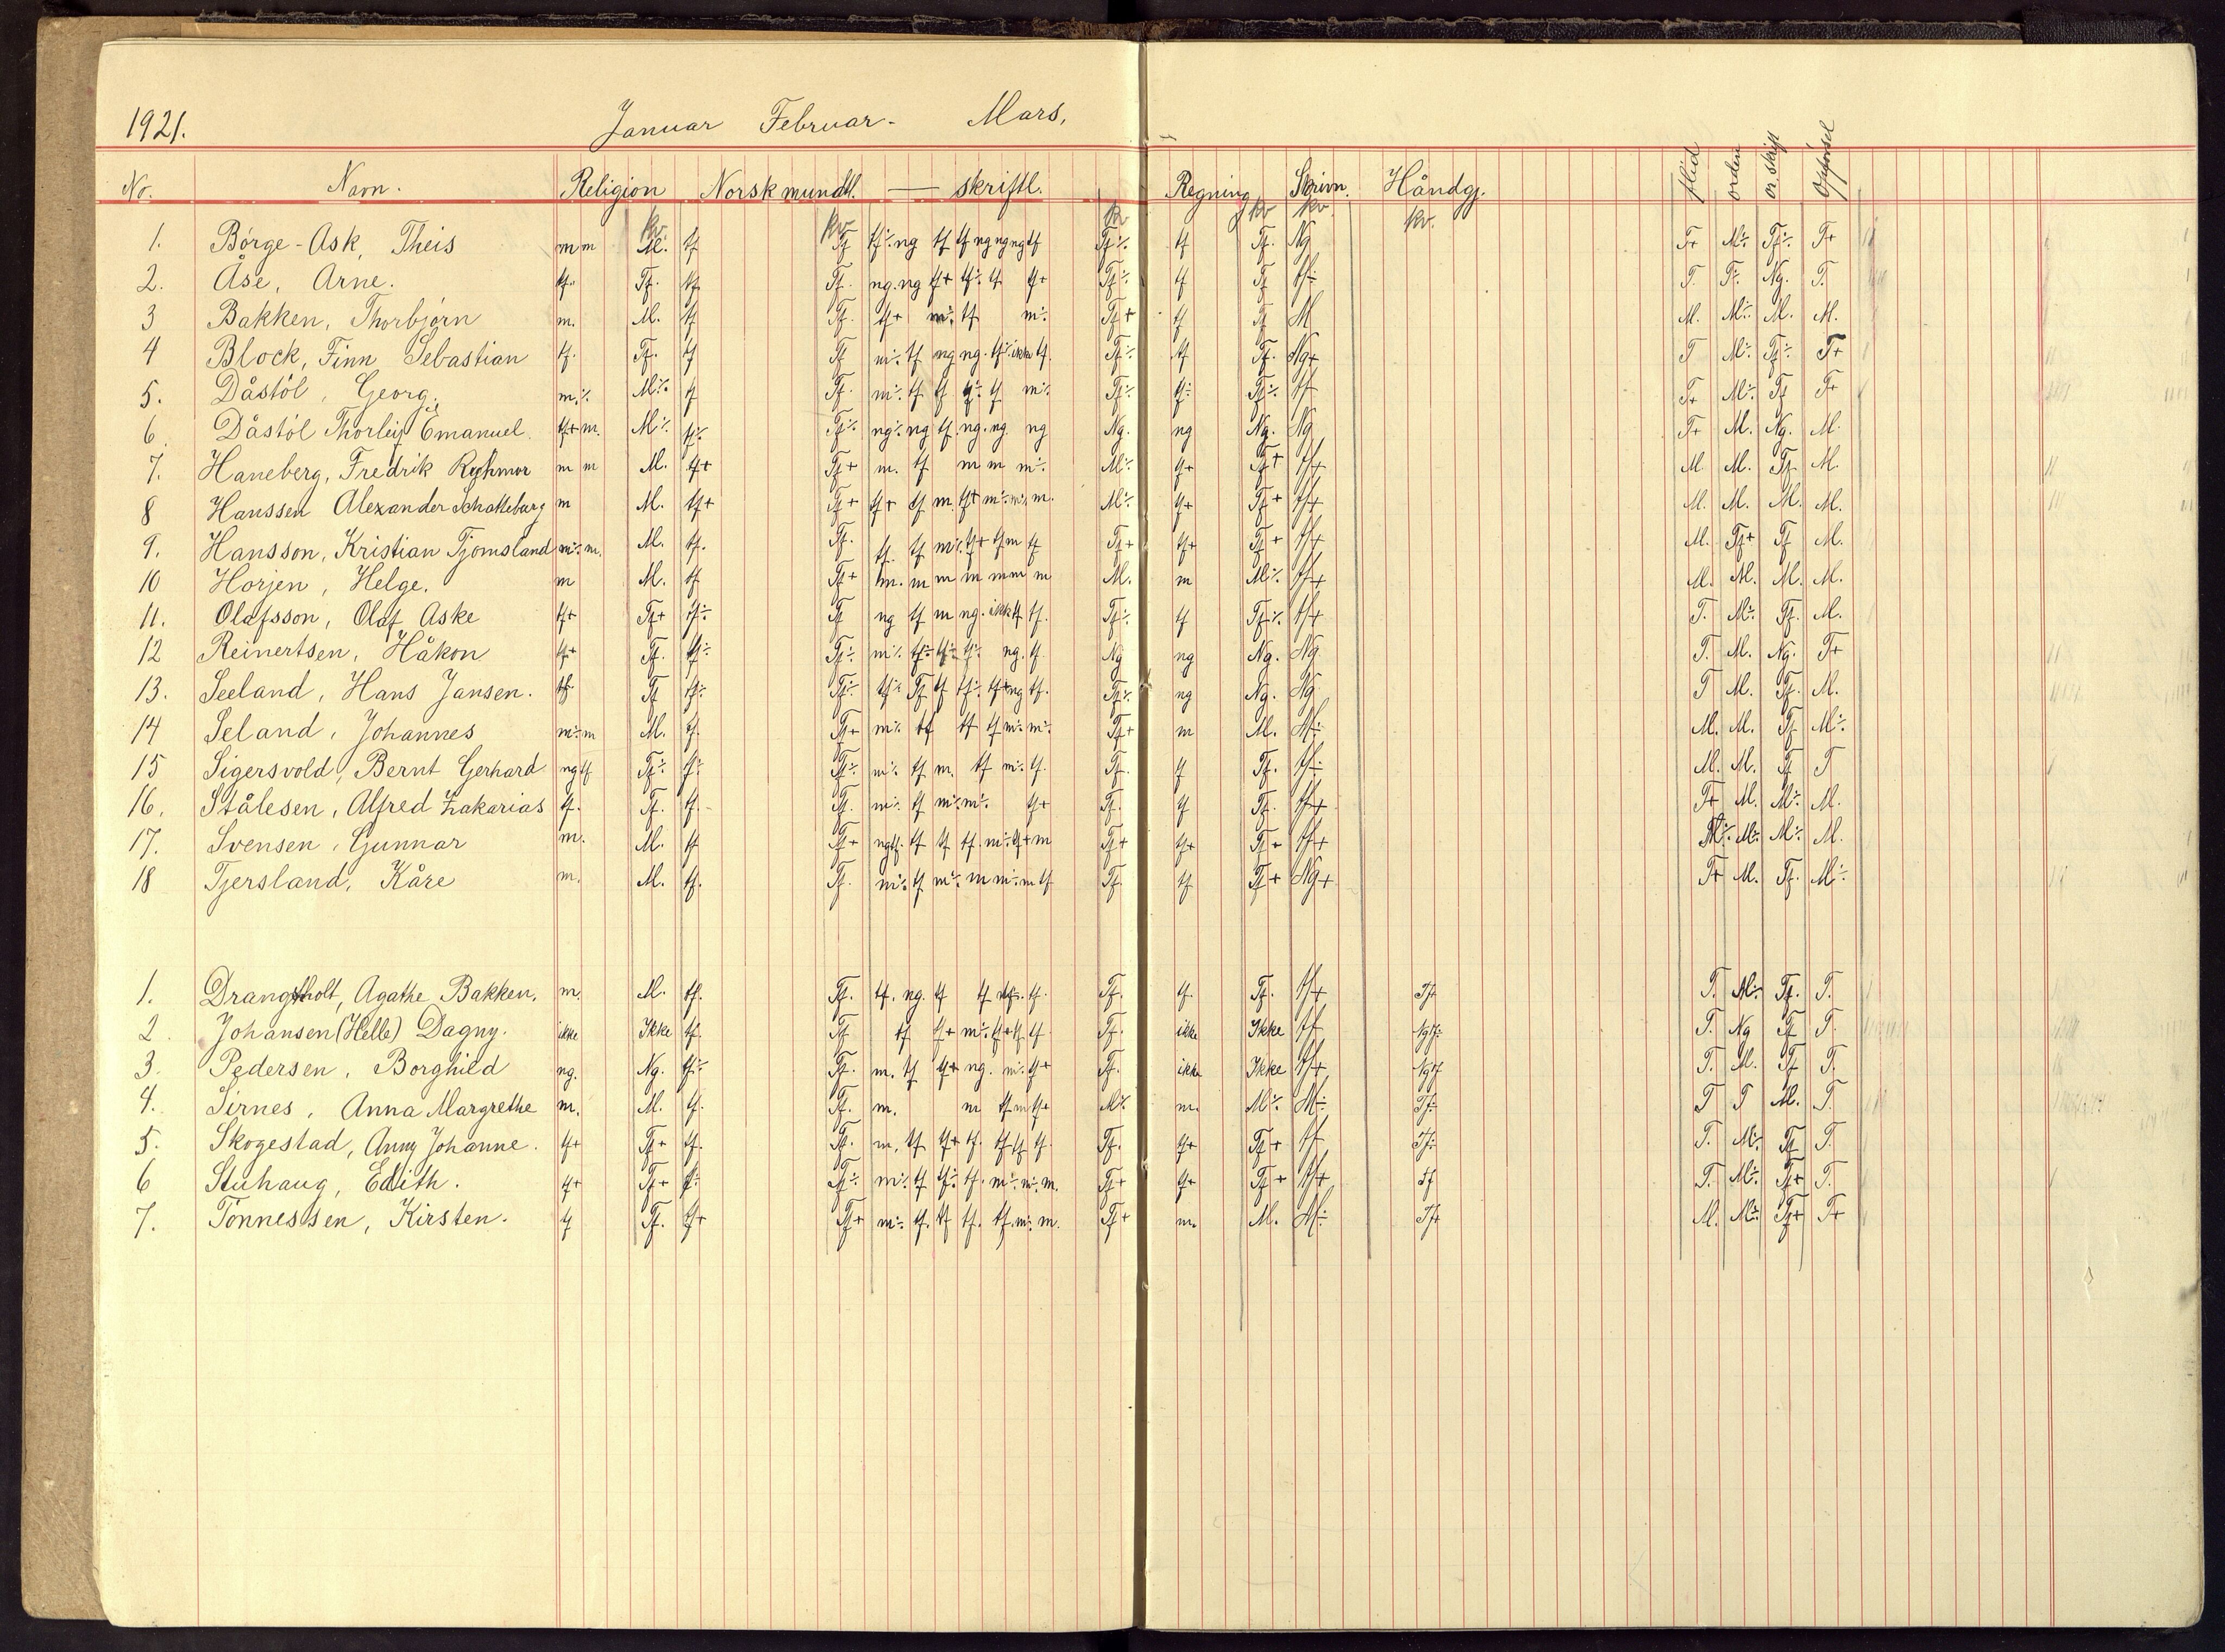 1921. Januar Februar - Mars,
No. Navn. Religion Norsk mundtl. — skriftl. Regning Skrivn. Håndgj. flid orden or. skrift Opførsel
kv. kv kv kv kv kv.
1. Börge-Ask, Theis m m M. tf Tf tf÷ ng tf tf ng ng ng tf Tf÷ tf Tf. Ng T+ M÷ Tf÷ T+
2. Åse, Arne. tf. Tf. tf. Tf. ng. ng tf+ tf÷ tf tf+ Tf÷ tf Tf tf÷ T. T÷ Ng. T.
3 Bakken, Thorbjörn m. M. tf Tf. tf+ m÷ tf m÷ Tf+ tf Tf M M. M÷ M. M.
4 Block, Finn Sebastian tf. Tf. tf Tf m÷ tf ng ng. tf÷ ikke tf. Tf÷ tf Tf. Ng+ T M÷ Tf÷ T+
5. Dåstöl, Georg. m÷ M÷ tf Tf. m÷ tf tf tf÷ tf m÷ Tf÷ tf÷ Tf÷ tf T+ M÷ Tf T+
6. Dåstöl Thorleif Emanuel. tf+ m. M÷ tf÷ Tf÷ ng÷ ng tf. ng. ng ng Ng. ng Ng. Ng T+ M. Ng. M.
7. Haneberg, Fredrik m m M. tf+ Tf+ m. tf m m m÷ M÷ tf+ Tf+ tf+ M. M. Tf M.
8 Hanssen Alexander m M. tf+ Tf+ tf+ tf m tf+ m÷ m÷ m. M÷ tf+ Tf+ tf+ M. M. M. M.
9. Hansson, Kristian Tjomsland m÷ m. M. tf. Tf. tf. tf m÷ tf+ tf m tf Tf+ tf+ Tf+ tf+ M. Tf+ Tf M.
10 Horjen, Helge. m M. tf Tf+ m. m m m m m m M. m M÷ tf+ M. M. M. M.
11. Olafsson, Olaf Aske tf+ Tf+ tf÷ Tf ng tf m ng. ikke tf tf. Tf÷ tf Tf÷ tf+ T. M÷ Tf. M.
12 Reinertsen, Håkon tf+ Tf. tf÷ Tf÷ m÷ tf÷ tf÷ tf÷ ng. tf. Ng ng Ng. Ng T. M. Ng. T+
13. Seeland, Hans Jansen. tf. Tf tf÷ Tf÷ tf÷ Tf tf tf÷ tf+ ng tf. Tf÷ ng Ng. Ng T M. Tf. M.
14 Seland, Johannes m÷ m M. tf. Tf+ m÷ tf tf tf m÷ m÷ Tf+ m M. M÷ M. M. Tf M÷
15 Sigersvold, Bernt Gerhard ng tf Tf÷ tf÷ Tf÷ m÷ tf m. tf m÷ tf. Tf. tf Tf. tf÷ M. M. Tf T
16. Stålesen, Alfred Zakarias tf. Tf. tf. Tf. m÷ tf m÷ m÷ tf+ Tf. tf Tf. tf+ T+ M. M÷ M.
17. Svensen, Gunnar m. M. tf Tf+ ng tf. tf tf tf. m÷ tf+ m Tf+ tf+ Tf+ tf+ M÷ M÷ M÷ M.
18 Tjersland, Kåre m. M. tf. Tf. m÷ tf m÷ m m÷ m tf Tf. tf Tf+ Ng+ T+ M. Tf. M÷
1. Drangsholt, Agathe Bakken. m. M. tf. Tf. tf. ng. tf tf tf÷ tf. Tf. tf. Tf. tf+ Tf. T. M÷ Tf. T.
2. Johansen (Helle) Dagny. ikke Ikke tf. Tf tf tf+ m÷ tf+ tf tf. Tf. ikke Ikke tf T. Ng Tf T.
3. Pedersen, Borghild ng. Ng. tf÷ Tf. m. tf tf+ ng. m÷ tf+ Tf. ikke Ikke tf+ T. M. Tf T.
4. Sirnes, Anna Margrethe m. M. tf. Tf. m. m tf m tf+ M÷ m. M÷ M÷ Tf÷ T T M. T.
5. Skogestad, Anny Johanne. tf+ Tf+ tf. Tf. m. tf tf+ tf. tf tf tf. Tf. tf+ Tf+ tf Tf÷ T. M÷ Tf T.
6 Stuhaug, Edith. tf+ Tf+ tf÷ Tf÷ m÷ tf tf÷ tf. m÷ m÷ m. Tf+ tf+ Tf+ tf+ tf T. M÷ Tf+ T.
7. Tönnessen, Kirsten. tf Tf. tf+ Tf+ m÷ tf. tf tf. tf. m÷ m. Tf+ m. M. M÷ Tf+ M. M÷ Tf+ T+